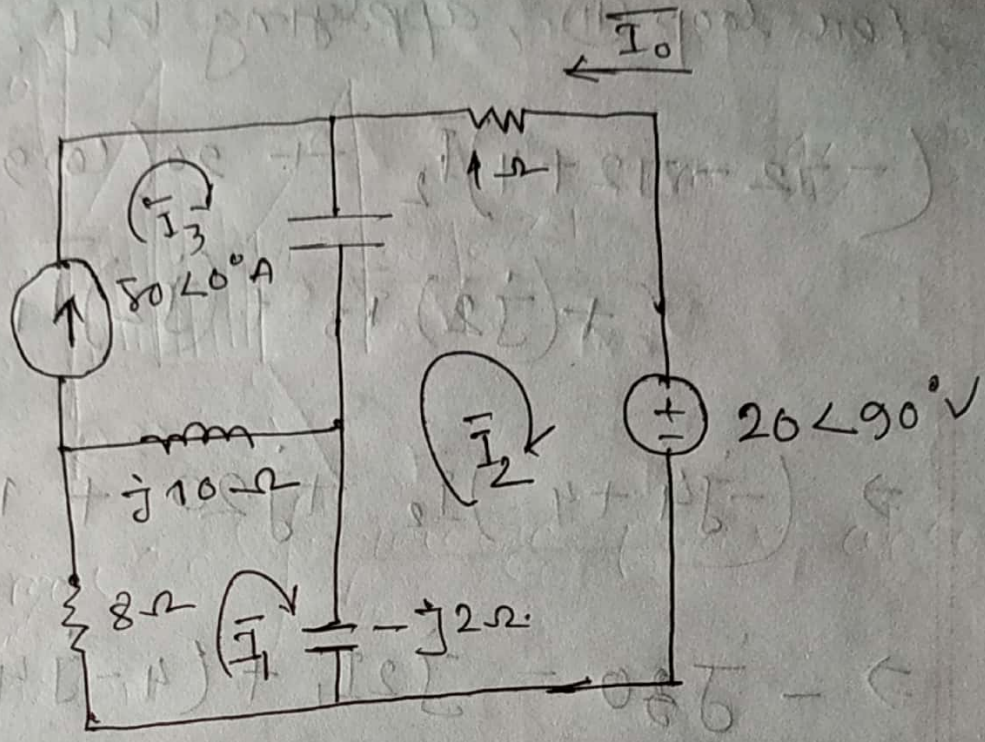 I₀
4 Ω
I₃
50∠0° A
I₂
+
-
20<90° V
j10 Ω
8 Ω
I₁
-j2 Ω.